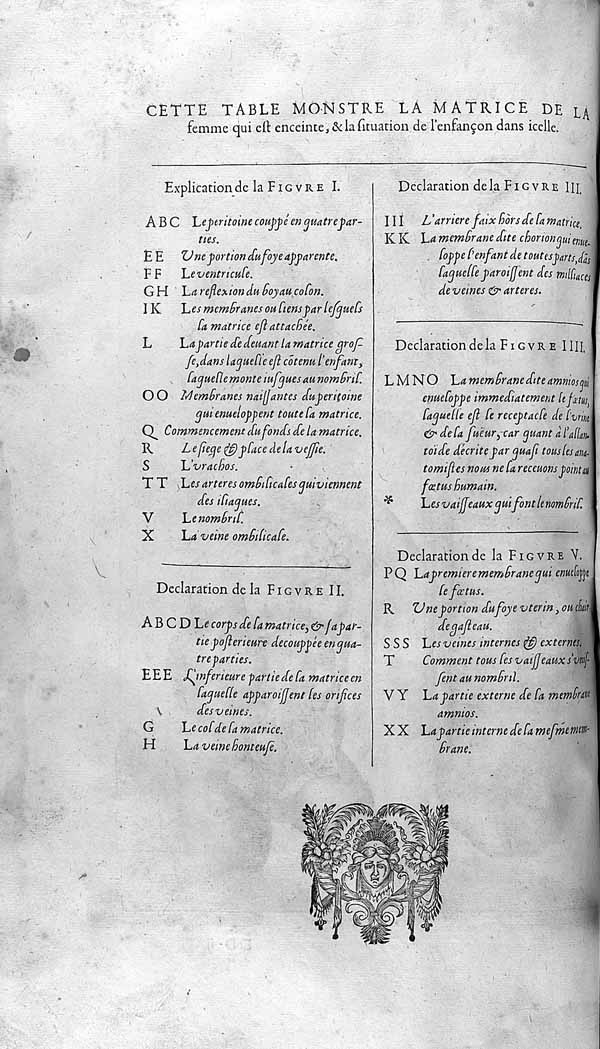 CETTE TABLE MONSTRE LA MATRICE DE LA
femme qui eſt enceinte, & la ſituation de l'enfançon dans icelle.
Explication de la FIGVRE I.
A B C Le peritoine couppé en quatre par-
ties.
E E Vne portion du foye apparente.
F F Le ventricule.
G H La reflexion du boyau colon.
I K Les membranes ou liens par leſquels
la matrice eſt attachée.
L La partie de deuant la matrice groſ-
ſe, dans laquelle eſt côtenu l'enfant,
laquelle monte iuſques au nombril.
O O Membranes naiſſantes du peritoine
qui enueloppent toute la matrice.
Q Commencement du fonds de la matrice.
R Le ſiege & place de la veſſie.
S L'vrachos.
T T Les arteres ombilicales qui viennent
des iliaques.
V Le nombril.
X La veine ombilicale.
Declaration de la FIGVRE II.
A B C D Le corps de la matrice, & ſa par-
tie poſterieure decouppée en qua-
tre parties.
E E E L'inferieure partie de la matrice en
laquelle apparoiſſent les orifices
des veines.
G Le col de la matrice.
H La veine honteuſe.
Declaration de la FIGVRE III.
I I I L'arriere faix hors de la matrice.
K K La membrane dite chorion qui enue-
loppe l'enfant de toutes parts, dãs
laquelle paroiſſent des milliaces
de veines & arteres.
Declaration de la FIGVRE IIII.
L M N O La membrane dite amnios qui
enueloppe immediatement le fœtus,
laquelle eſt le receptacle de l'vrine
& de la ſueur, car quant à l'allan-
toïde décrite par quaſi tous les ana-
tomiſtes nous ne la receuons point au
fœtus humain.
* Les vaiſſeaux qui font le nombril.
Declaration de la FIGVRE V.
P Q La premiere membrane qui enueloppe
le fœtus.
R Vne portion du foye vterin, ou
de gaſteau.
S S S Les veines internes & externes.
T Comment tous les vaiſſeaux s'vniſ-
ſent au nombril.
V Y La partie externe de la membrane
amnios.
X X La partie interne de la meſme mem-
brane.